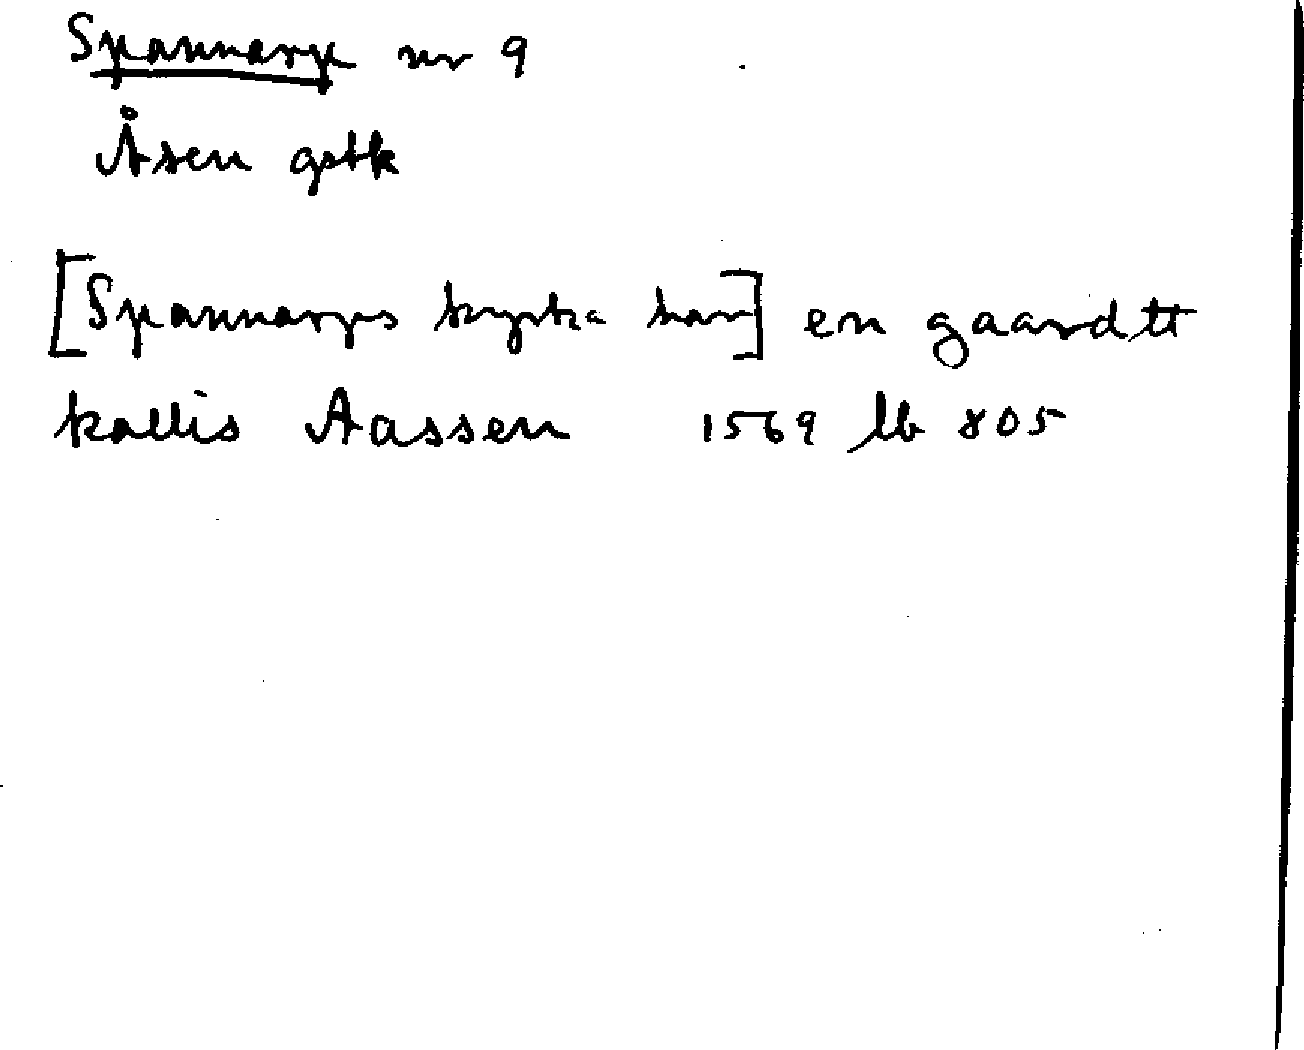 Spannarp nr 9
Åsen gstk
[Spannarps kyrka har] en gaardtt
kallis Aassen 1569 lb 805